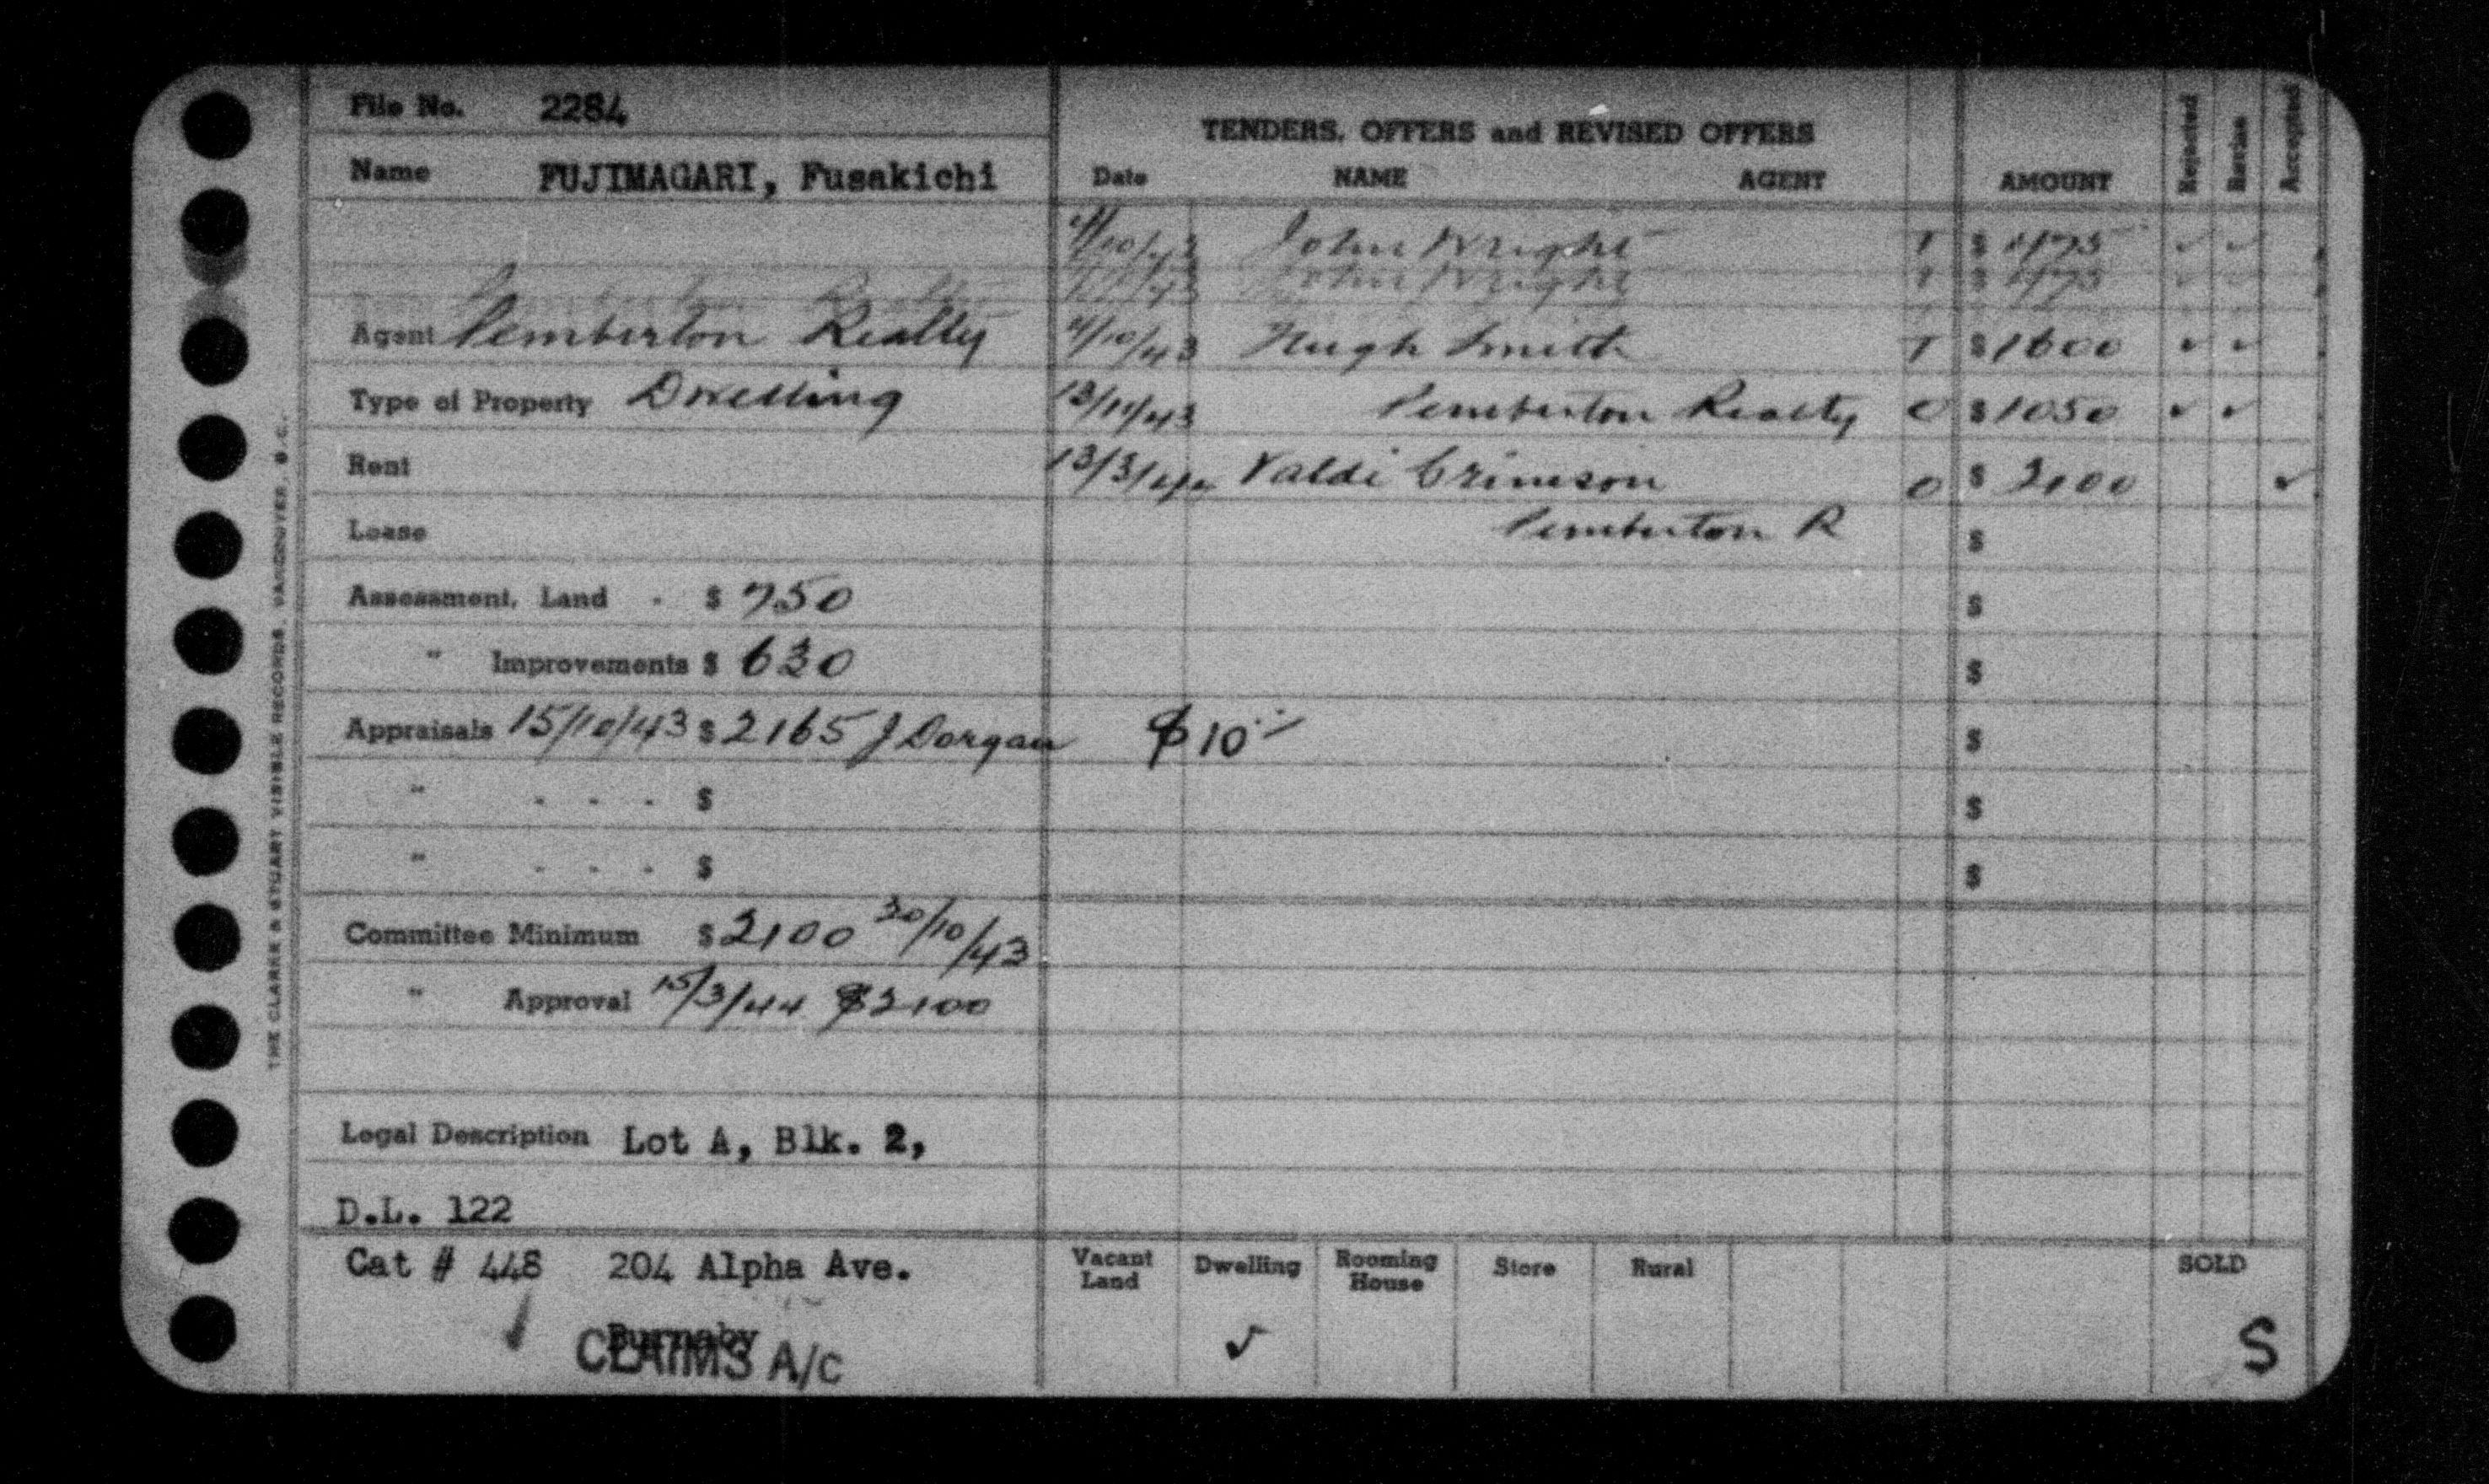 File No. 2284
Name FUJIMAGARI, Fusakichi
Agent Pemberton Realty
Type of Property Dwelling
Rent
Lease
Assessment, Land - $ 750
" Improvements $ 630
Appraisals 15/10/43 $ 2165 J Dorgan $10
" - - - $
" - - - $
Committee Minimum $ 2100 20/10/43
" Approval 15/3/44 $2100
Legal Description Lot A, Blk. 2,
D.L. 122
Cat # 448 204 Alpha Ave.
Burnaby
CLAIMS A/c
TENDERS, OFFERS and REVISED OFFERS
Date NAME AGENT AMOUNT Rejected Revise Accepted
11/10/43 John Wright T $ 1175 ✓ ✓
11/10/43 Hugh Smith T $ 1600 ✓ ✓
12/11/43 Pemberton Realty O $ 1050 ✓ ✓
13/3/44 Valdi Crimson O $ 2100 ✓
Pemberton R $
$
$
$
$
$
Vacant Land Dwelling Rooming House Store Rural SOLD
✓ S
THE CLARKE & STUART VISIBLE RECORDS, VANCOUVER, B.C.